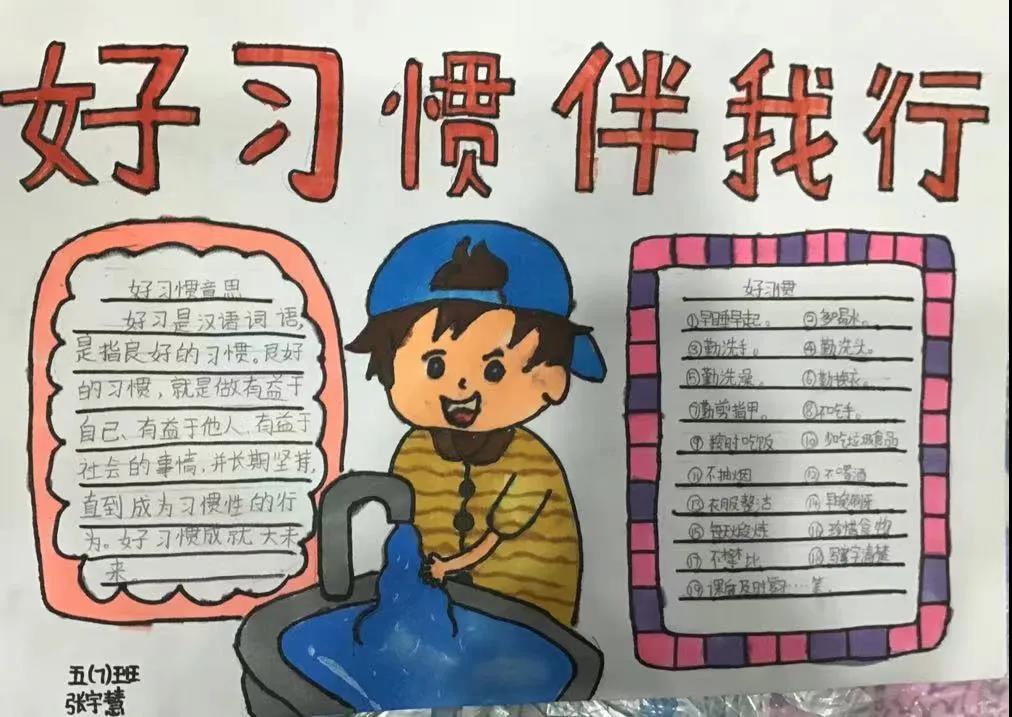 好习惯伴我行
好习惯意思
好习是汉语词语,
是指良好的习惯。良好
的习惯，就是做有益于
自己、有益于他人、有益于
社会的事情,并长期坚持,
直到成为习惯性的行
为。好习惯成就大未
来。
好习惯
①早睡早起。 ②多喝水。
③勤洗手。 ④勤洗头。
⑤勤洗澡。 ⑥勤换衣。
⑦勤剪指甲。 ⑧不吃手。
⑨按时吃饭 ⑩少吃垃圾食品
⑪不抽烟 ⑫不喝酒
⑬衣服整洁 ⑭早晚刷牙
⑮每天锻炼 ⑯珍惜食物
⑰不攀比 ⑱写字清楚
⑲课后及时复习……等.
五(7)班
张宇慧